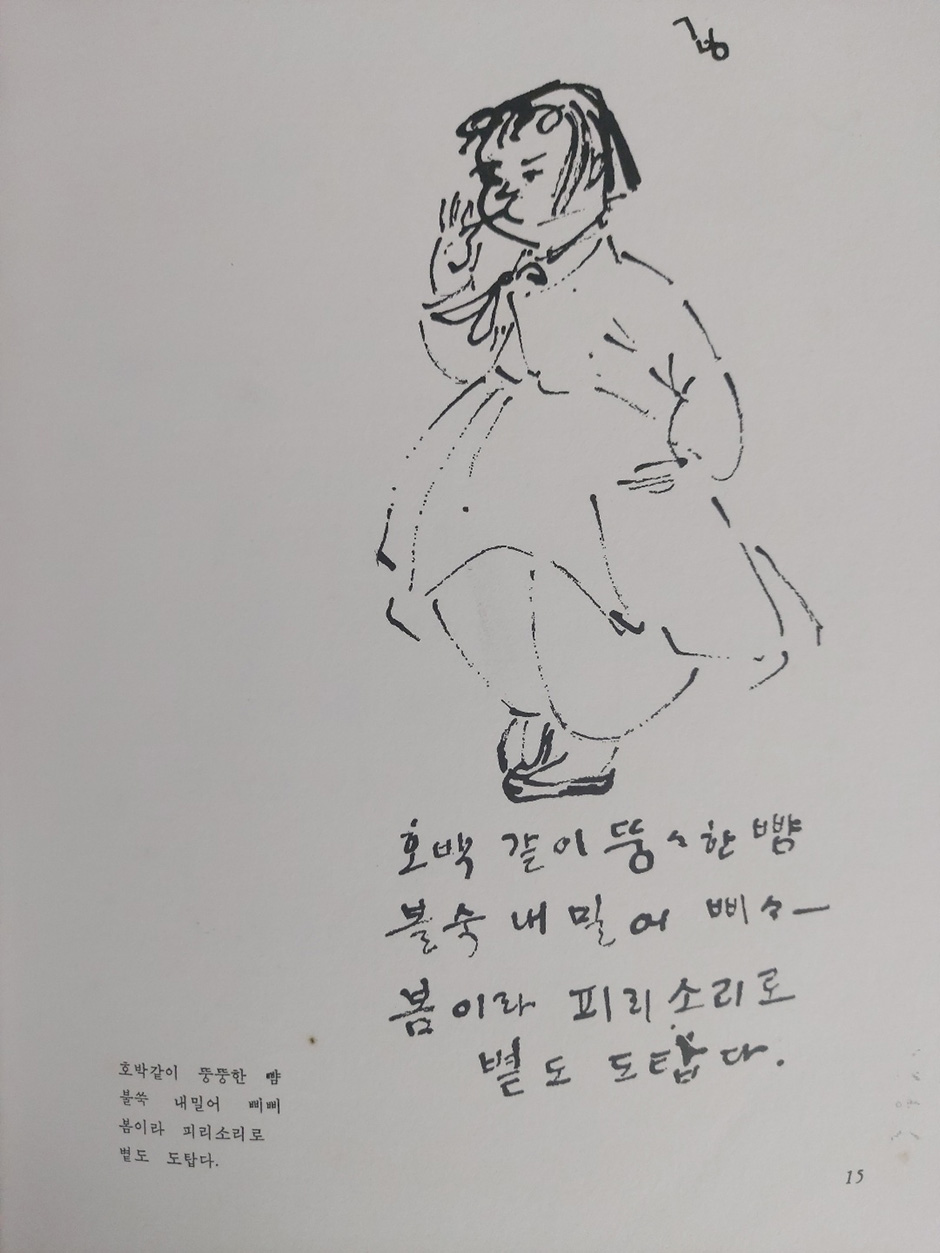 호박 같이 뚱〃한 뺨
불숙 내밀어 삐〃—
봄이라 피리소리로
볕도 도탑다.
호박같이 뚱뚱한 뺨
불쑥 내밀어 삐삐
봄이라 피리소리로
볕도 도탑다.
15